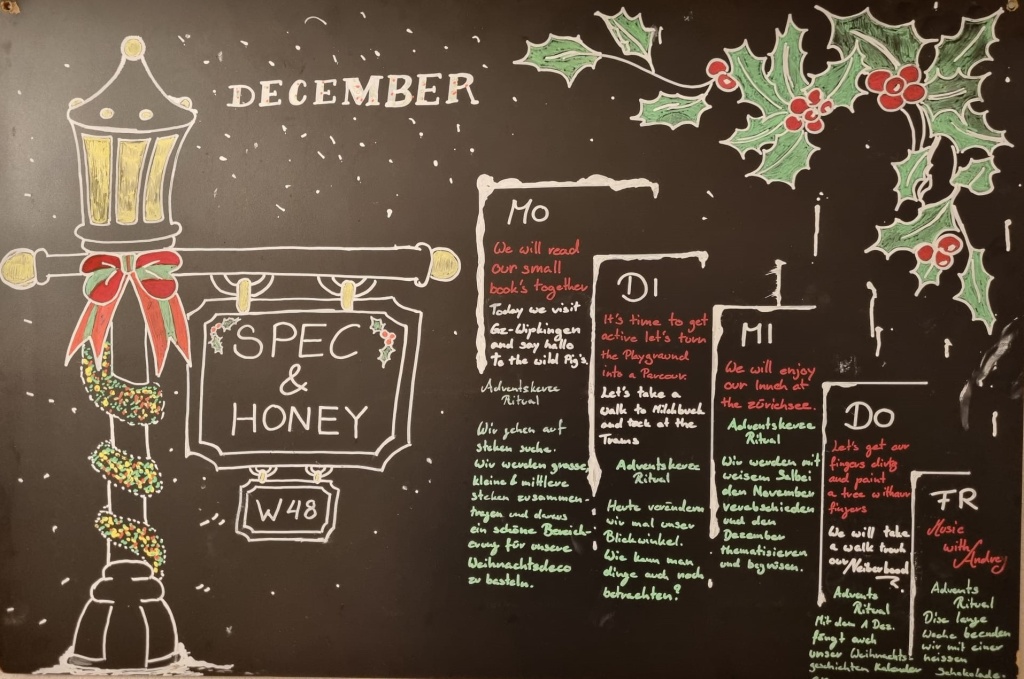 DECEMBER
SPEC
&
HONEY
W48
MO
We will read
our small
book's together
Today we visit
Ge-Wipkingen
and say hallo
To the wild Pig's.
Adventskerze
Ritual
Wir gehen auf
steken suche.
Wir werden grosse,
kleine & mittlere
steken zusammen-
tragen und daraus
ein schöne Bereich-
erung für unsere
Weihnachtsdeco
zu basteln.
DI
It's time to get
active let's turn
the Playground
into a Parcour.
Let's take a
walk to Milchbuck
and look at the
Trams
Adventskerze
Ritual
Heute verändern
wir mal unser
Blickwinkel.
Wie kann man
dinge auch noch
betrachten?
MI
We will enjoy
our lunch at
the zürichsee.
Adventskerze
Ritual
Wir werden mit
weisem Salbei
den November
verabschieden
und den
Dezember
thematisieren
und begrüsen.
DO
Let's get our
fingers dirty
and paint
a tree withour
fingers
We will take
a walk trouh
our Neiberhood
Advents
Ritual
Mit dem 1 Dez.
fängt auch
unser Weihnachts-
geschichten Kalender
FR
Music
with
Andrey
Advents
Ritual
Dise lange
Woche beenden
wir mit einer
heissen
Schokolade.